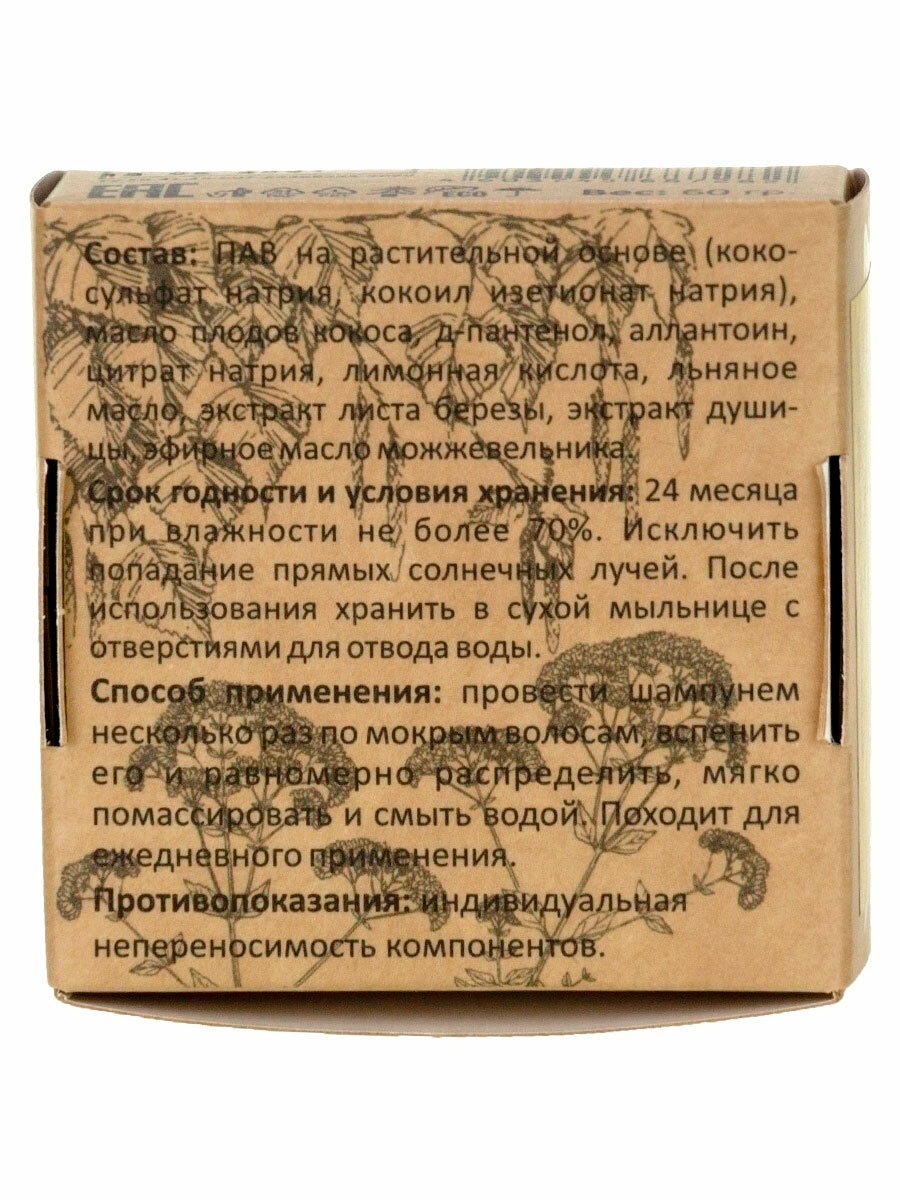 ЕАС
Вес: 60 гр.
Состав: ПАВ на растительной основе (коко-
сульфат натрия, кокоил изетионат натрия),
масло плодов кокоса, д-пантенол, аллантоин,
цитрат натрия, лимонная кислота, льняное
масло, экстракт листа березы, экстракт души-
цы, эфирное масло можжевельника.
Срок годности и условия хранения: 24 месяца
при влажности не более 70%. Исключить
попадание прямых солнечных лучей. После
использования хранить в сухой мыльнице с
отверстиями для отвода воды.
Способ применения: провести шампунем
несколько раз по мокрым волосам, вспенить
его и равномерно распределить, мягко
помассировать и смыть водой. Походит для
ежедневного применения.
Противопоказания: индивидуальная
непереносимость компонентов.